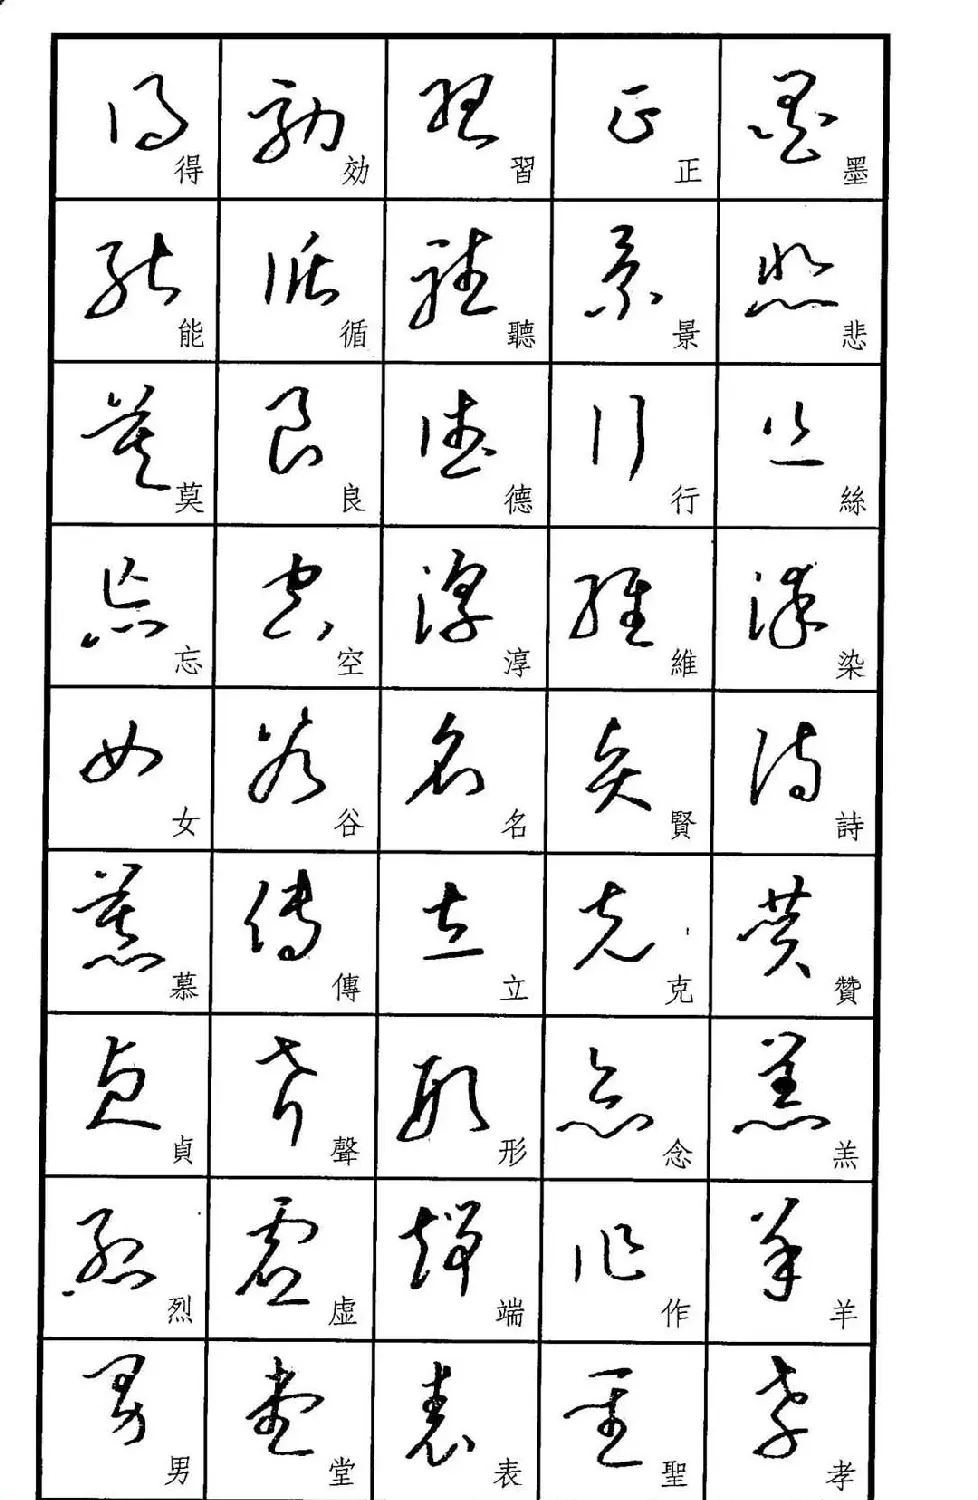 墨悲絲染詩贊羔羊孝
正景行維賢克念作聖
習聽德淳名立形端表
効循良空谷傳聲虛堂
得能莫忘女慕貞烈男